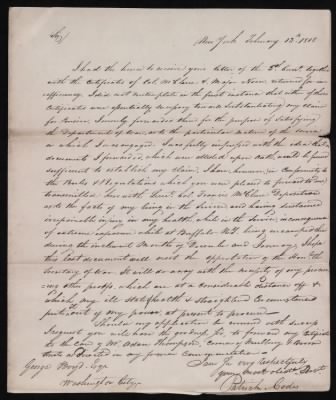 Sir,
New York February 12th 1818
I had the honor to receive your letter of the 5th Curnt. together
with the Certificates of Col. McClure & Major Noon returned for in-
sufficiency. I did not contemplate in the first instance that either of those
Certificates were essentially necessary toward substantiating my claim
for Pension. I merely forwarded them for the purpose of satisfying
the Department of War, with the particular nature of the service
in which I was engaged. I was fully impressed with the idea that the
documents I forwarded, which were attested upon oath, would be found
sufficient to establish my claim. I have, however, in Conformity to
the Rules & Regulations which you were pleased to forward to me
transmitted herewith Lieut. Deposition
with the facts of my being in the Service and having sustained
irreparable injury in my health, while in the Service, in consequence
of extreme exposure while at Buffalo N.Y. being encamped there
during the inclement Months of December and January. I hope
this last document will meet the approbation of the Hon. the
Secretary of War. It will do away with the necessity of my procur-
ing other proofs, which are at a considerable distance off &
which my ill state of health & straightened Circumstances
put it out of my power, at present to procure.
Should my application be crowned with success
I request you will have the goodness to forward my Certificate
to the care of Mr. Adam Thompson, corner Mulberry & Cross
Streets as stated in my former Communication.
I am Sir very respectfully
your most obedt. Servt.
Patrick
George Boyd, Esqr.
Washington City.